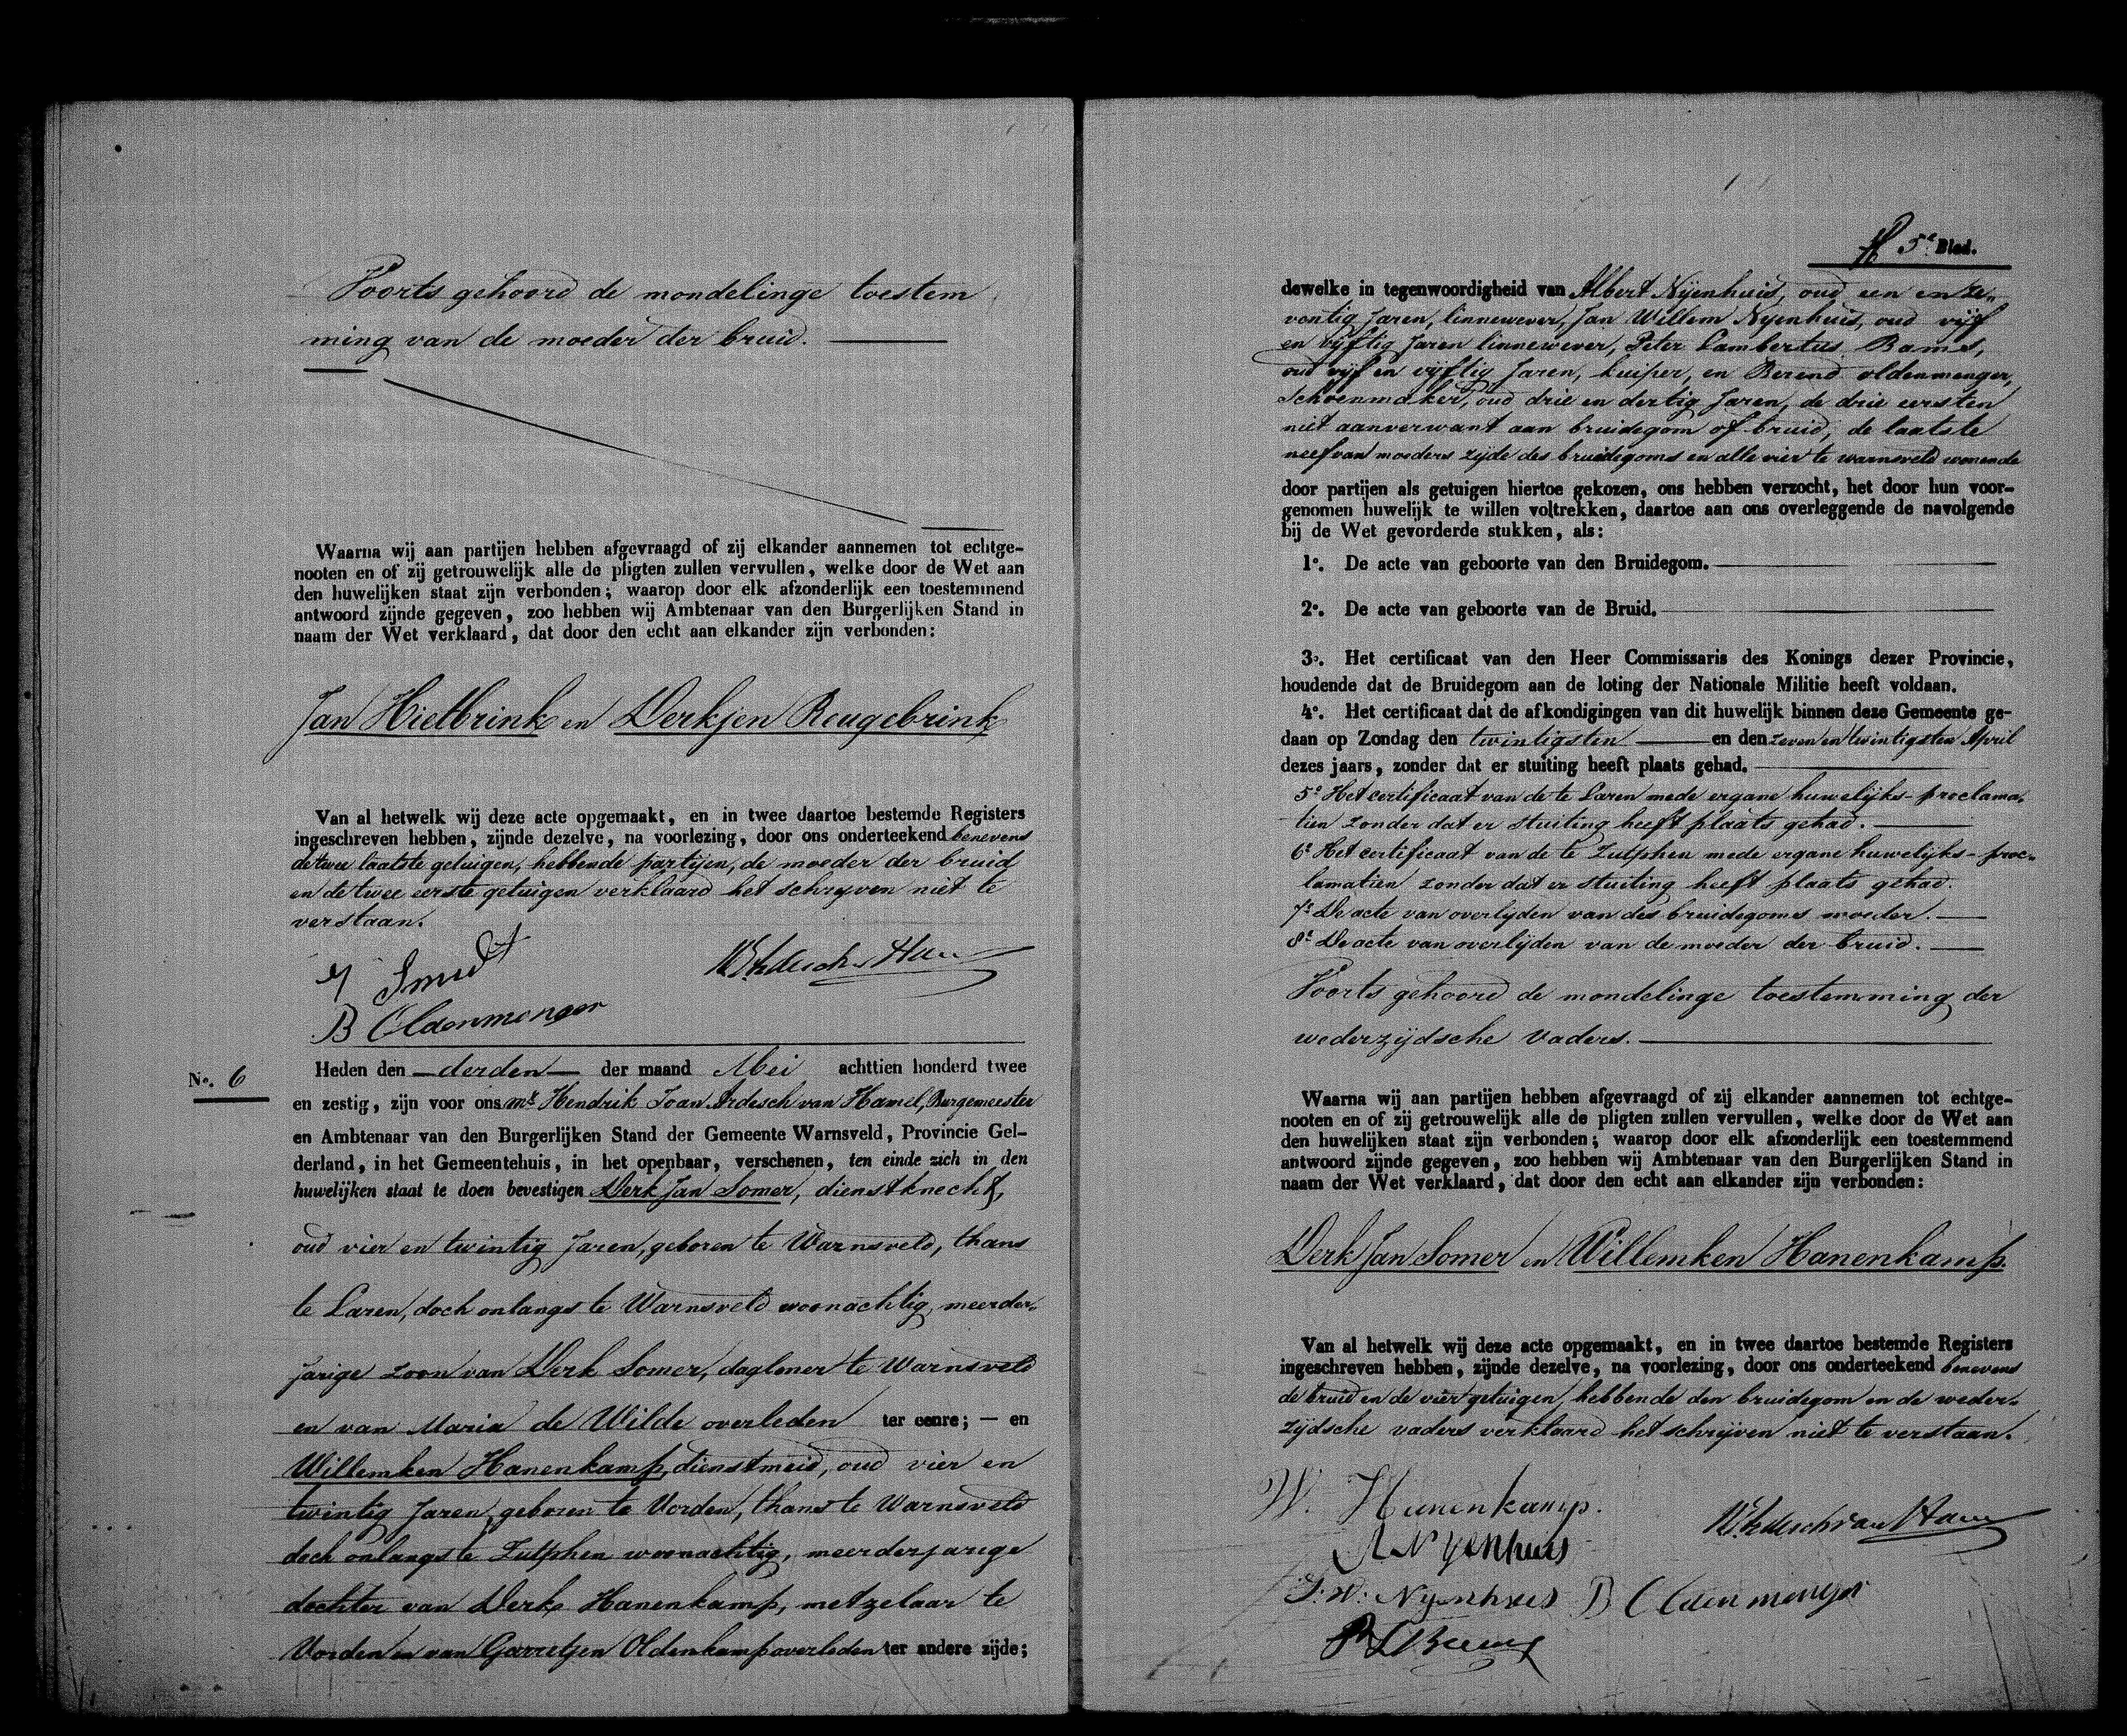 Voorts gehoord de mondelinge toestem
ming van de moeder der bruid.
Waarna wij aan partijen hebben afgevraagd of zij elkander aannemen tot echtge-
nooten en of zij getrouwelijk alle de pligten zullen vervullen, welke door de Wet aan
den huwelijken staat zijn verbonden; waarop door elk afzonderlijk een toestemmend
antwoord zijnde gegeven, zoo hebben wij Ambtenaar van den Burgerlijken Stand in
naam der Wet verklaard, dat door den echt aan elkander zijn verbonden:
Jan Hietbrink en Derkjen Reugebrink
Van al hetwelk wij deze acte opgemaakt, en in twee daartoe bestemde Registers
ingeschreven hebben, zijnde dezelve, na voorlezing, door ons onderteekend benevens
de twee laatste getuigen, hebbende partijen, de moeder der bruid
en de twee eerste getuigen verklaard het schryven niet te
verstaan.
Smudt
B Oldenmenger
No. 6
Heden den derden der maand Mei achttien honderd twee
en zestig, zijn voor ons Mr. Hendrik Joan Ardesch van Hamel, Burgemeester
en Ambtenaar van den Burgerlijken Stand der Gemeente Warnsveld, Provincie Gel-
derland, in het Gemeentehuis, in het openbaar, verschenen, ten einde zich in den
huwelijken staat te doen bevestigen Derk Jan Somer, dienstknecht,
oud vier en twintig Jaren, geboren te Warnsveld, thans
te Laren, doch onlangs te Warnsveld woonachtig, meerder-
jarige zoon van Derk Somer, dagloner te Warnsveld
en van Maria de Wilde overleden ter eenre; — en
Willemken Hanenkamp, dienstmeid, oud vier en
twintig Jaren, geboren te Vorden, thans te Warnsveld
doch onlangs te Zutphen woonachtig, meerderjarige
dochter van Derk Hanenkamp, metzelaar te
Vorden en van Garretjen Oldenkamp overleden ter andere zijde;
5e Blad.
dewelke in tegenwoordigheid van Albert Nyenhuis, oud een en ze-
ventig Jaren, linnewever, Jan Willem Nyenhuis, oud vijf
en vijftig Jaren linnewever, Peter Lambertus Bames,
oud vijf en vijftig Jaren, kuiper, en Berend oldenmenger,
Schoenmaker, oud drie en dertig Jaren, de drie eersten
niet aanverwant aan bruidegom of bruid, de laatste
neef van moeders zijde des bruidegoms en alle vier te warnsveld wonende
door partijen als getuigen hiertoe gekozen, ons hebben verzocht, het door hun voor-
genomen huwelijk te willen voltrekken, daartoe aan ons overleggende de navolgende
bij de Wet gevorderde stukken, als:
1o. De acte van geboorte van den Bruidegom.
2o. De acte van geboorte van de Bruid.
3o. Het certificaat van den Heer Commissaris des Konings dezer Provincie,
houdende dat de Bruidegom aan de loting der Nationale Militie heeft voldaan.
4o. Het certificaat dat de afkondigingen van dit huwelijk binnen deze Gemeente ge-
daan op Zondag den twintigsten en den zeven en twintigsten April
dezes jaars, zonder dat er stuiting heeft plaats gehad.
5o Het certificaat van de te Laren mede ergane huwelijks-proclama-
tien zonder dat er stuiting heeft plaats gehad.
6o Het certificaat van de te Zutphen mede ergane huwelijks-proc-
lamatien zonder dat er stuiting heeft plaats gehad.
7o De acte van overlijden van des bruidegoms moeder.
8o De acte van overlijden van de moeder der bruid.
Voorts gehoord de mondelinge toestemming der
wederzijdsche vaders.
Waarna wij aan partijen hebben afgevraagd of zij elkander aannemen tot echtge-
nooten en of zij getrouwelijk alle de pligten zullen vervullen, welke door de Wet aan
den huwelijken staat zijn verbonden; waarop door elk afzonderlijk een toestemmend
antwoord zijnde gegeven, zoo hebben wij Ambtenaar van den Burgerlijken Stand in
naam der Wet verklaard, dat door den echt aan elkander zijn verbonden:
Derk Jan Somer en Willemken Hanenkamp.
Van al hetwelk wij deze acte opgemaakt, en in twee daartoe bestemde Registers
ingeschreven hebben, zijnde dezelve, na voorlezing, door ons onderteekend benevens
de bruid en de vier getuigen, hebbende den bruidegom en de weder-
zijdsche vaders verklaard het schrijven niet te verstaan.
W. Hanenkamp.
A Nyenhuis
J. W. Nyenhuis B Oldenmenger